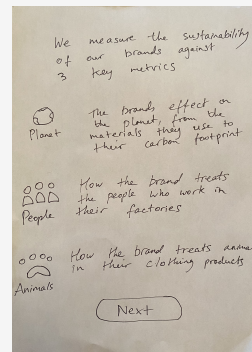 We measure the sustainability
of our brands against
3 key metrics
The brands effect on
the planet, from the
materials they use to
their carbon footprint
Planet
How the brand treats
the people who work in
their factories
People
How the brand treats anima
in their clothing products
Animals
Next